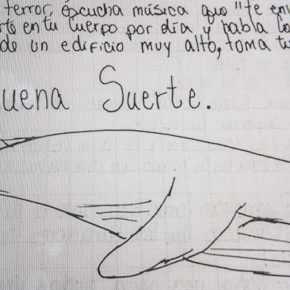 terror, escucha música que "te
en tu cuerpo por día y habla
de un edificio muy alto, toma
uena Suerte.